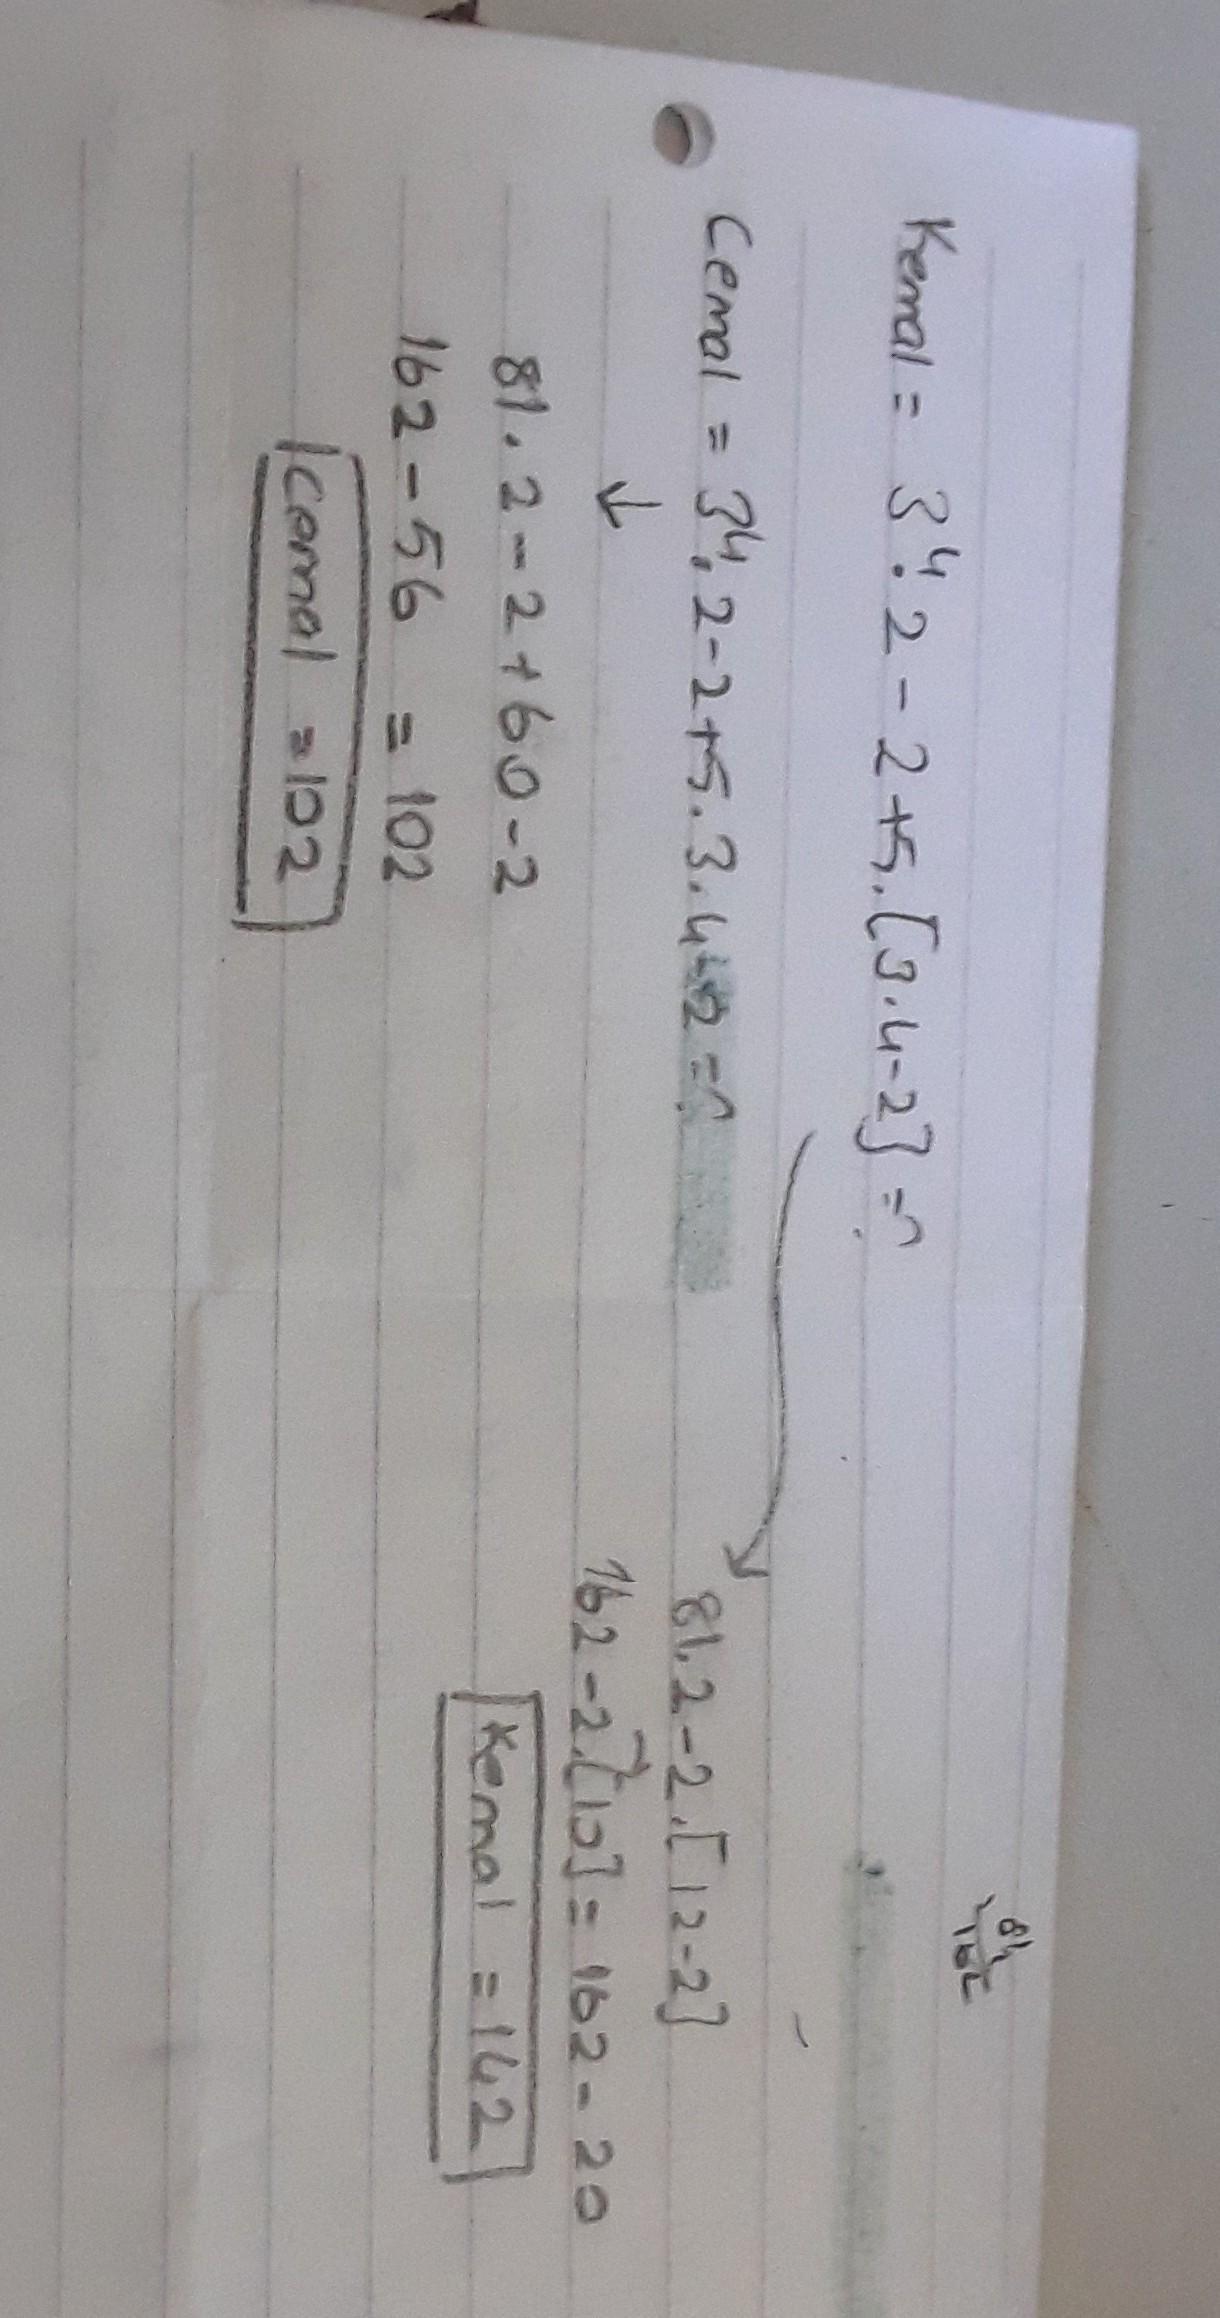 Kemal = 3⁴.2 - 2 + 5.[3.4-2] = ?
Cemal = 3⁴.2-2+5.3.4-2 = ?
81.2-2+60-2
162-56 = 102
Cemal = 102
81
162
81.2-2.[12-2]
162-2.[10] = 162-20
Kemal = 142